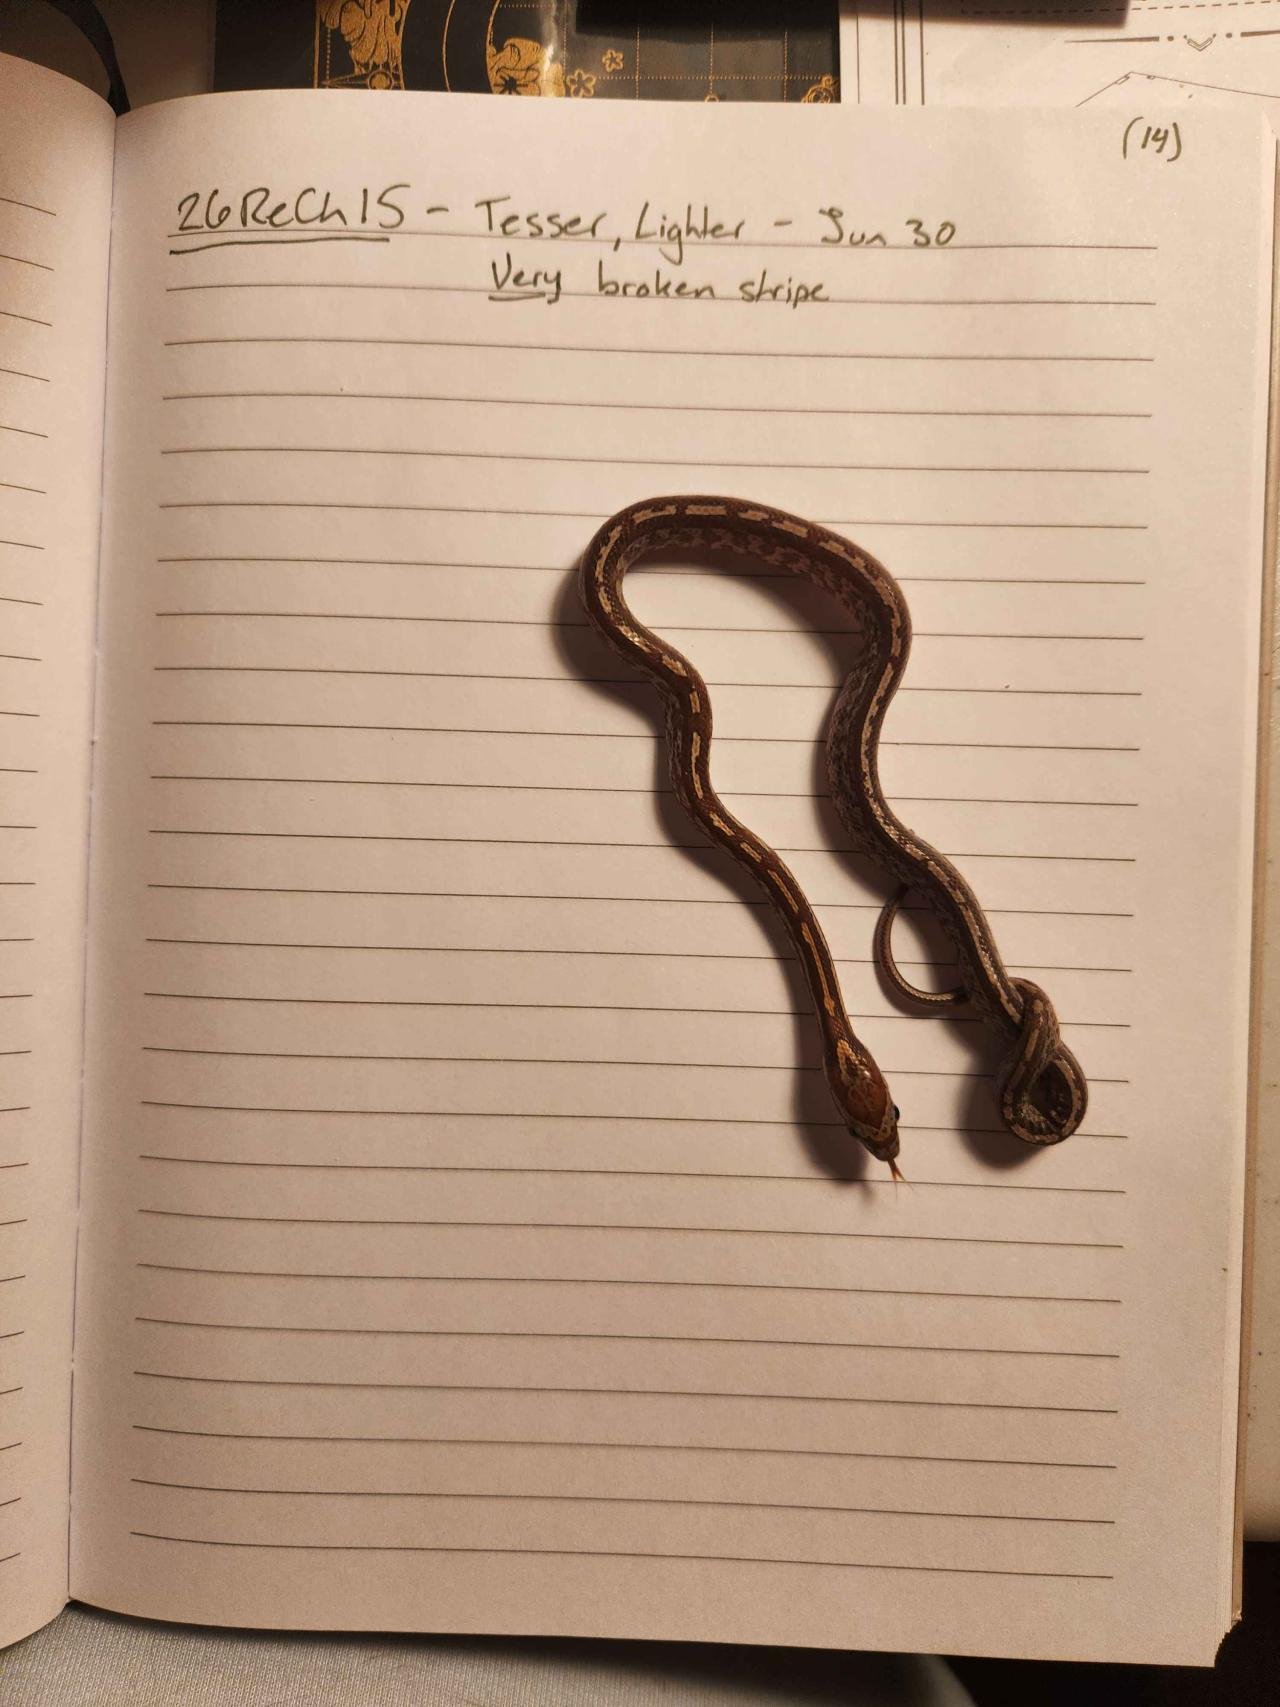 (14)
26ReCh15 - Tesser, Lighter - Jun 30
Very broken stripe